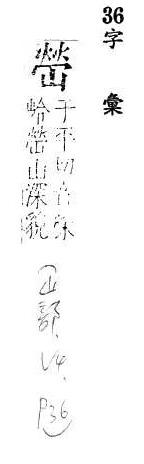 36字彙
嵤
于平切音榮
岭嵤山深貌
(山部, V4, P36)